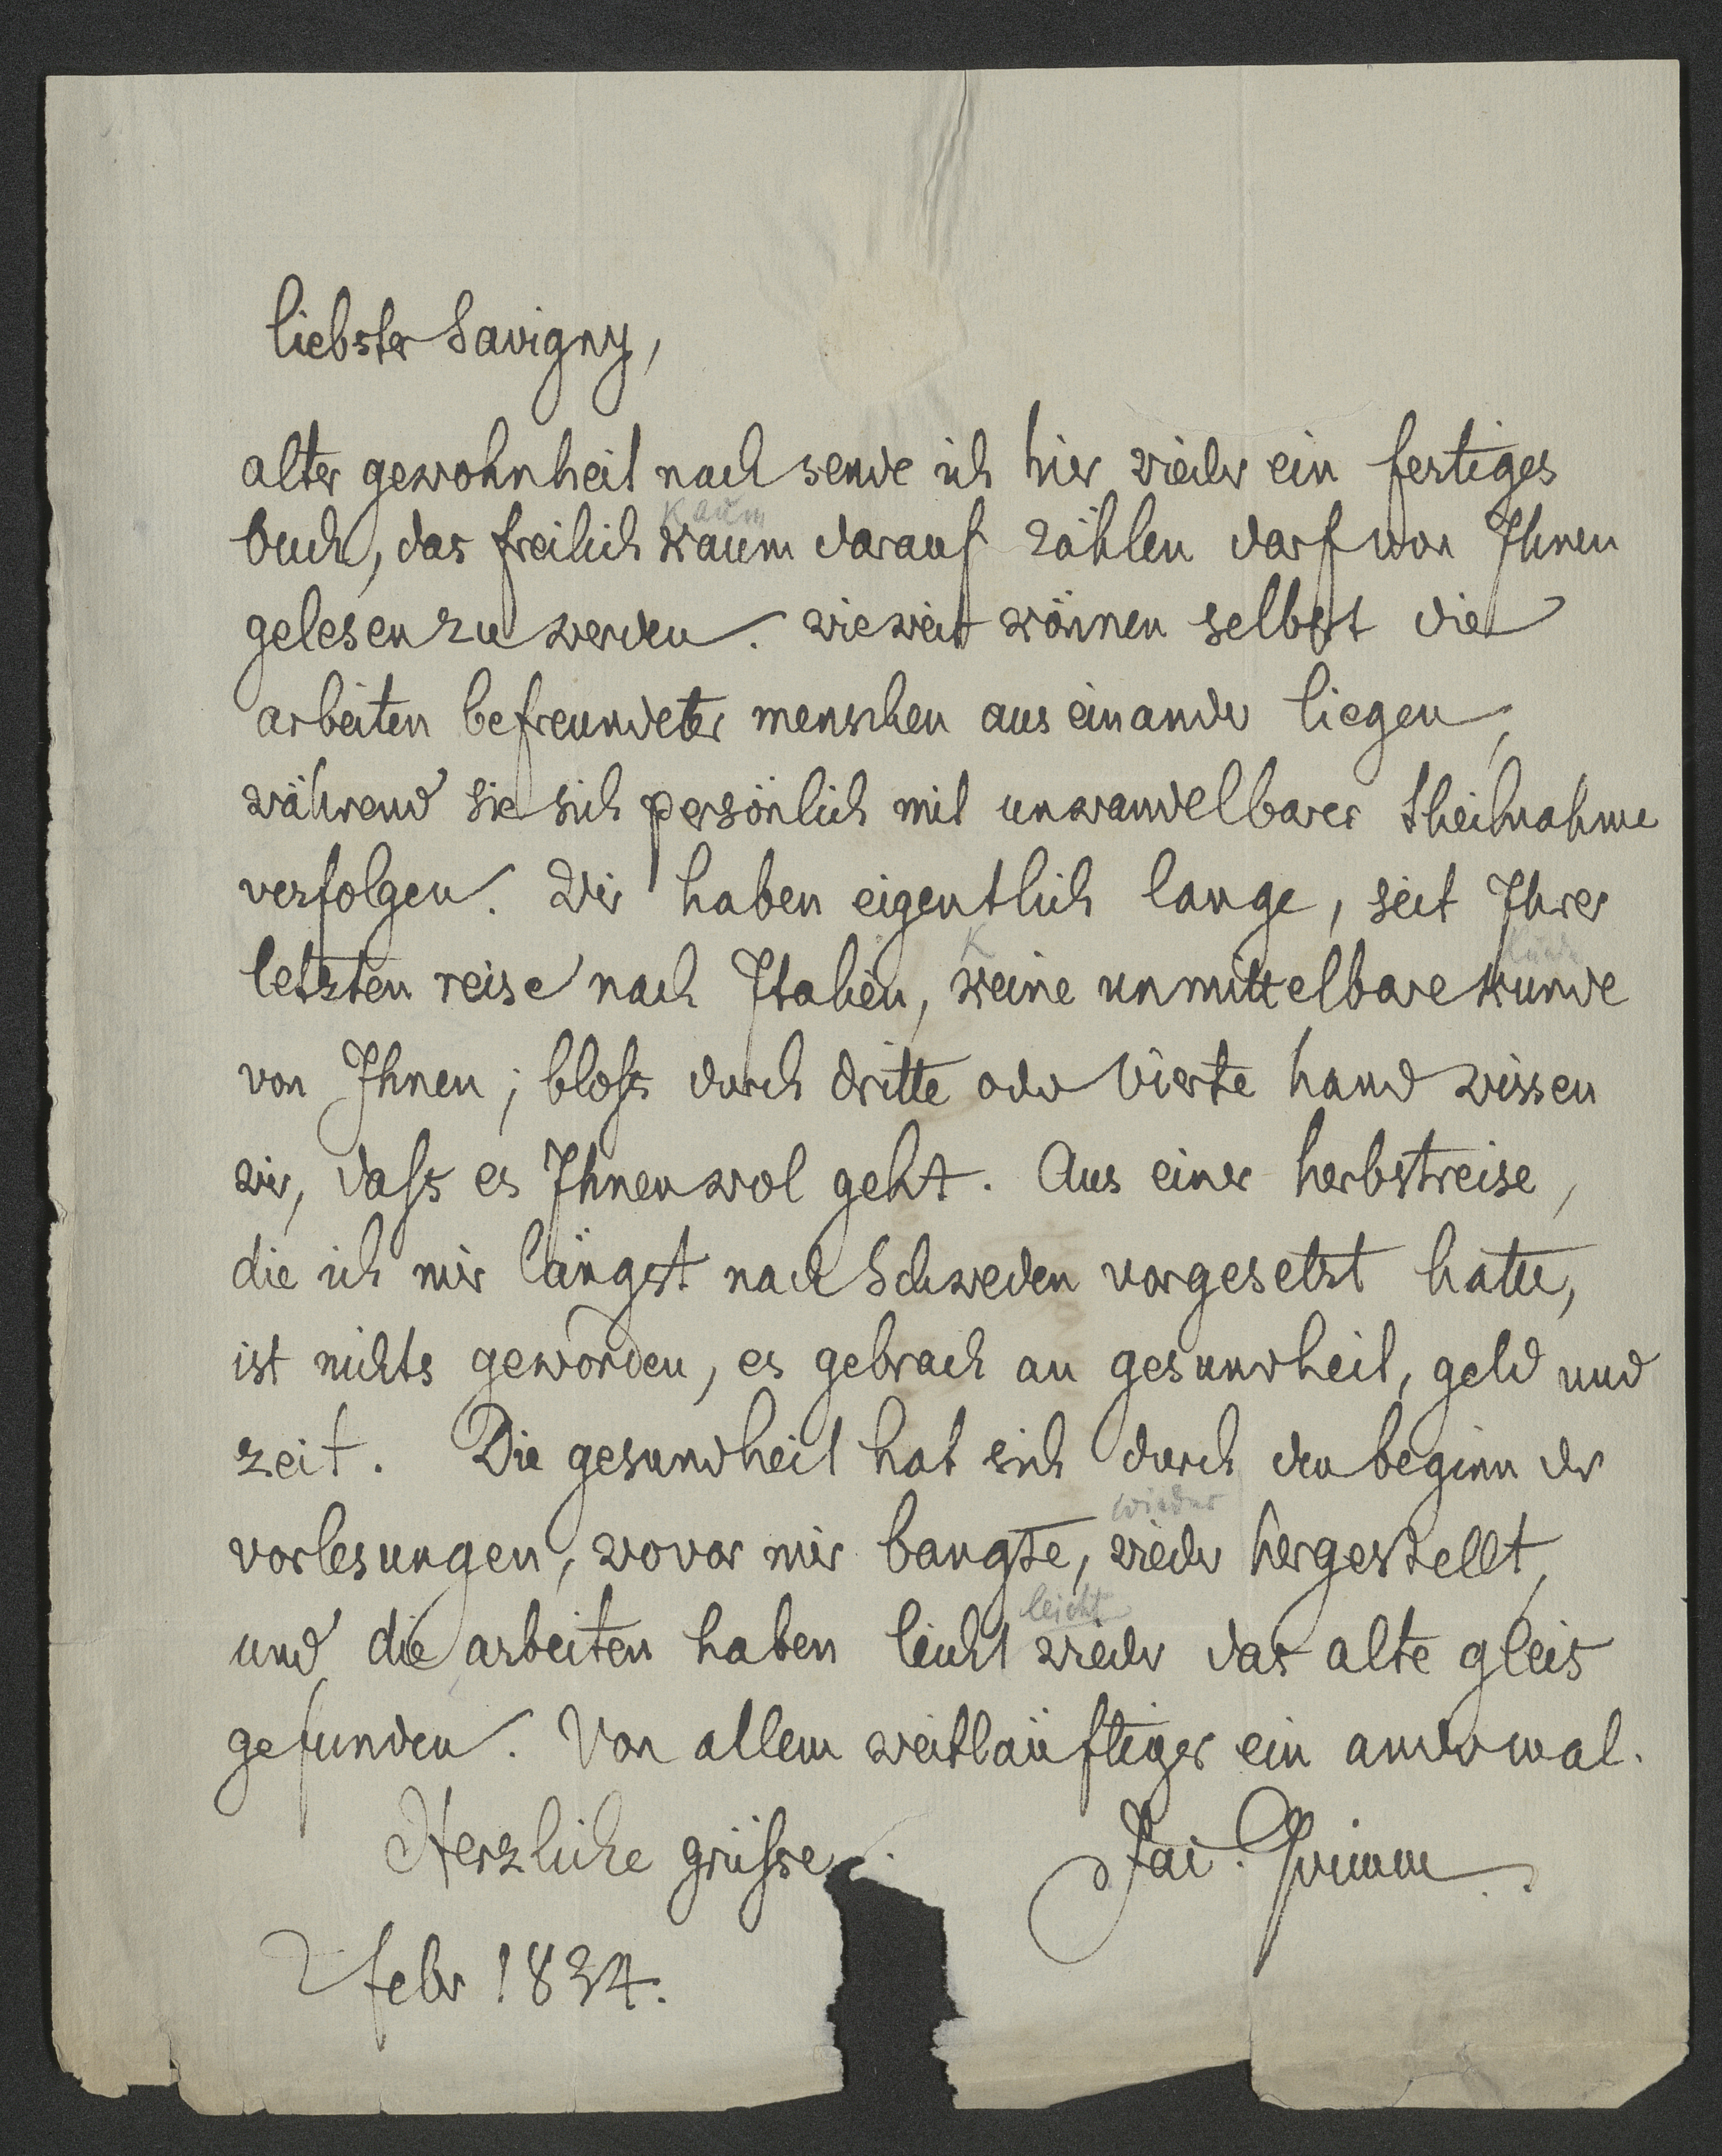 liebster Savigny,
alter gewohnheit nach sende ich hier wieder ein fertiges
kaum
buch, das freilich kaum darauf zählen darf von Ihnen
gelesen zu werden. wie weit können selbst die
arbeiten befreundeter menschen aus einander liegen,
während sie sich persönlich mit unwandelbarer theilnahme
verfolgen. Wir haben eigentlich lange, seit Ihrer
K kunde
letzten reise nach Italien, keine unmittelbare kunde
von Ihnen; bloſs durch dritte oder vierte hand wissen
wir, daſs es Ihnen wol geht. Aus einer herbstreise,
die ich mir längst nach Schweden vorgesetzt hatte,
ist nichts geworden, es gebrach an gesundheit, geld und
zeit. Die gesundheit hat sich durch den beginn der
wieder
vorlesungen, wovor mir bangte, wieder hergestellt,
leicht
und die arbeiten haben leicht wieder das alte gleis
gefunden. Von allem weitläuftiger ein andermal.
Herzliche grüſse. Jac. Grimm.
2 febr 1834.